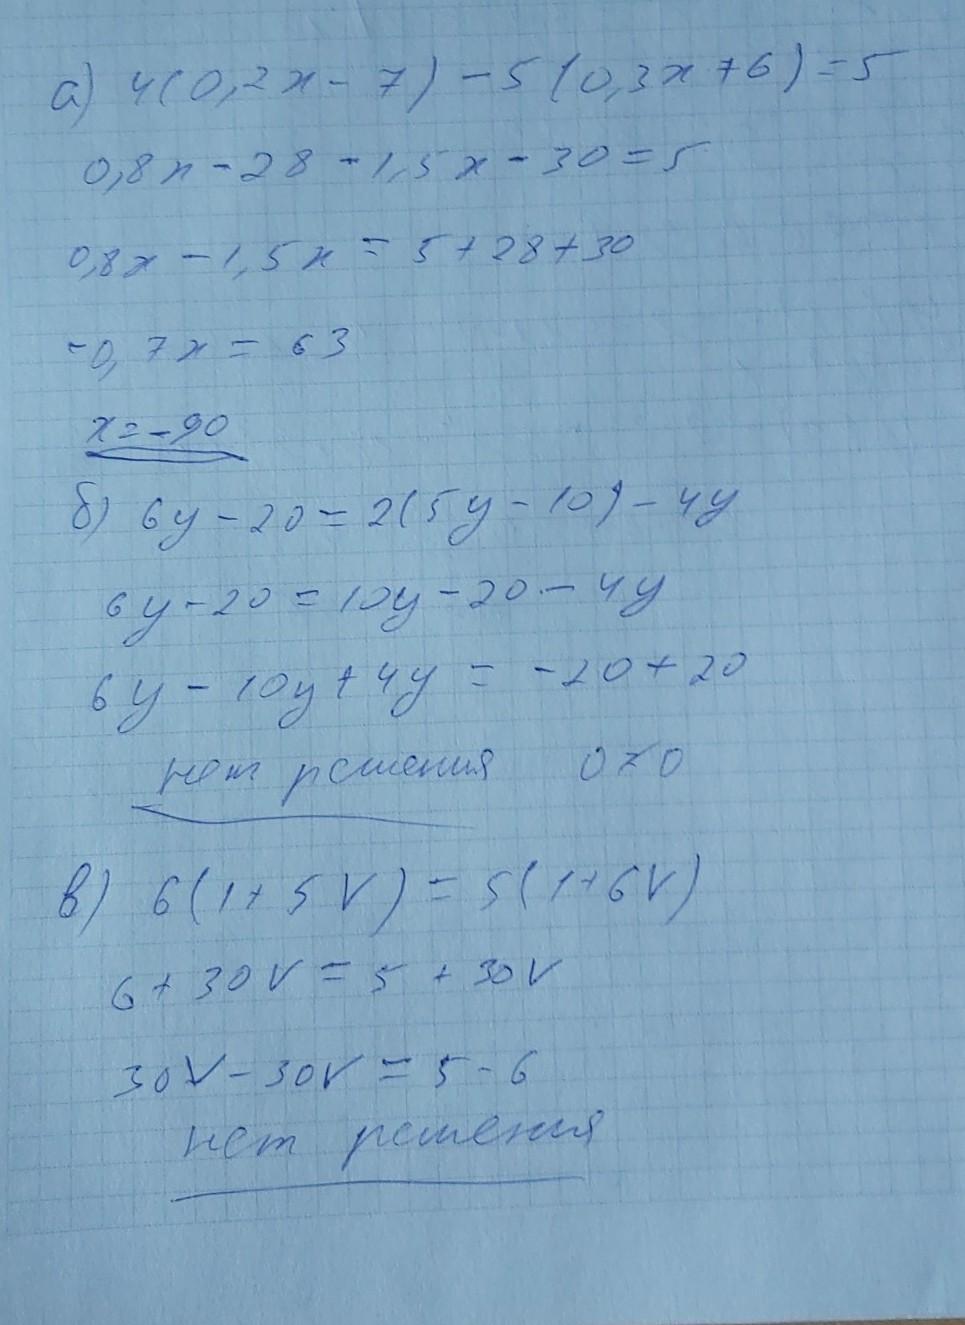 а) 4(0,2x - 7) - 5(0,3x + 6) = 5
0,8x - 28 - 1,5x - 30 = 5
0,8x - 1,5x = 5 + 28 + 30
-0,7x = 63
x = -90
б) 6y - 20 = 2(5y - 10) - 4y
6y - 20 = 10y - 20 - 4y
6y - 10y + 4y = -20 + 20
нет решения 0 = 0
в) 6(1 + 5V) = 5(1 + 6V)
6 + 30V = 5 + 30V
30V - 30V = 5 - 6
нет решения